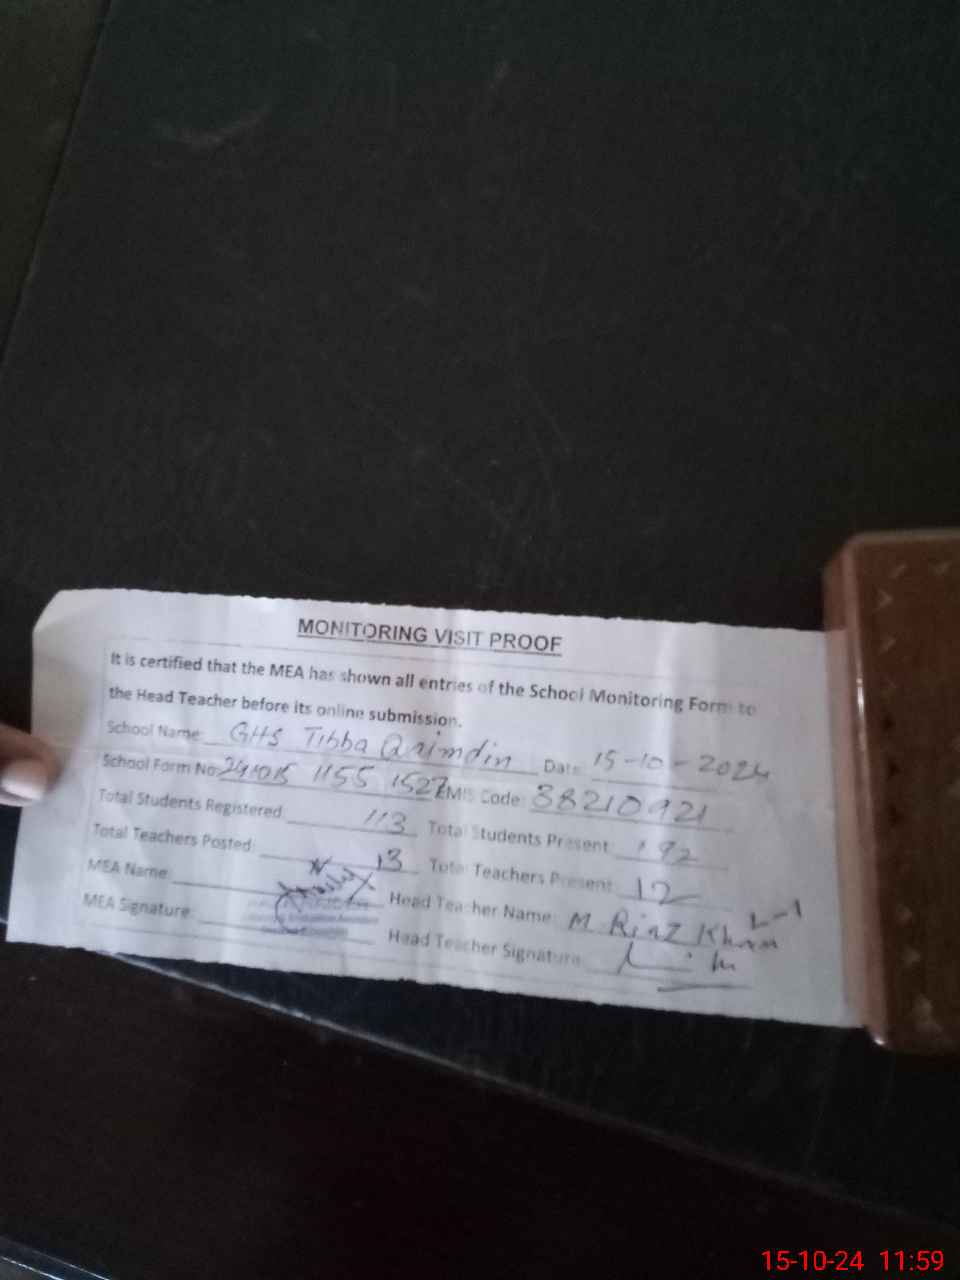 MONITORING VISIT PROOF
It is certified that the MEA has shown all entries of the School Monitoring Form to
the Head Teacher before its online submission.
School Name: GHS Tibba Qaimdin Date: 15-10-2024
School Form No: 241015 1155 1527 EMIS Code: 38210921
Total Students Registered: 113 Total Students Present: 92
Total Teachers Posted: 13 Total Teachers Present: 12
MEA Name: Head Teacher Name: M. Riaz Khan L-1
MEA Signature: Head Teacher Signature:
15-10-24 11:59